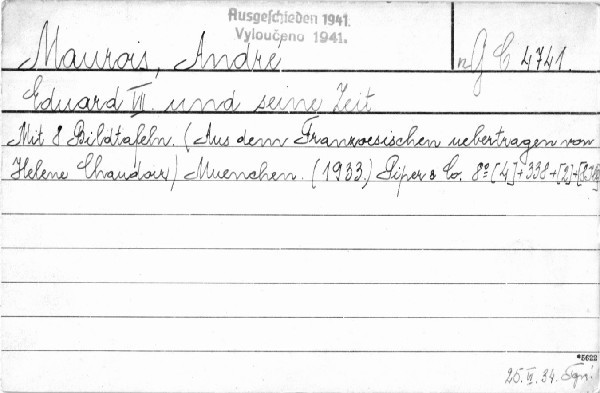 Ausgeschieden 1941.
Vyloučeno 1941.
Maurois, André
n G C 4741.
Eduard VII. und seine Zeit
Mit 8 Bildtafeln. (Aus dem Franzoesischen uebertragen von
Helene Chaudoir) Muenchen. (1933.) Piper & Co. 8º [4]+338+[2]+[8
*5622
25. VI. 34.